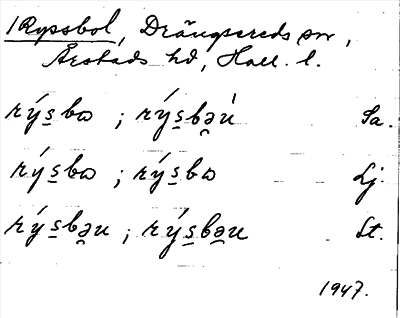 1 Ryssbol, Drängsereds sn,
Årstads hd, Hall. l.
rýs̲bω ; rýs̲bə̯ú Sa.
rýs̲bω ; rýs̲bω Lj.
rýs̲bə̯u ; rýs̲bə̯u St.
1947.